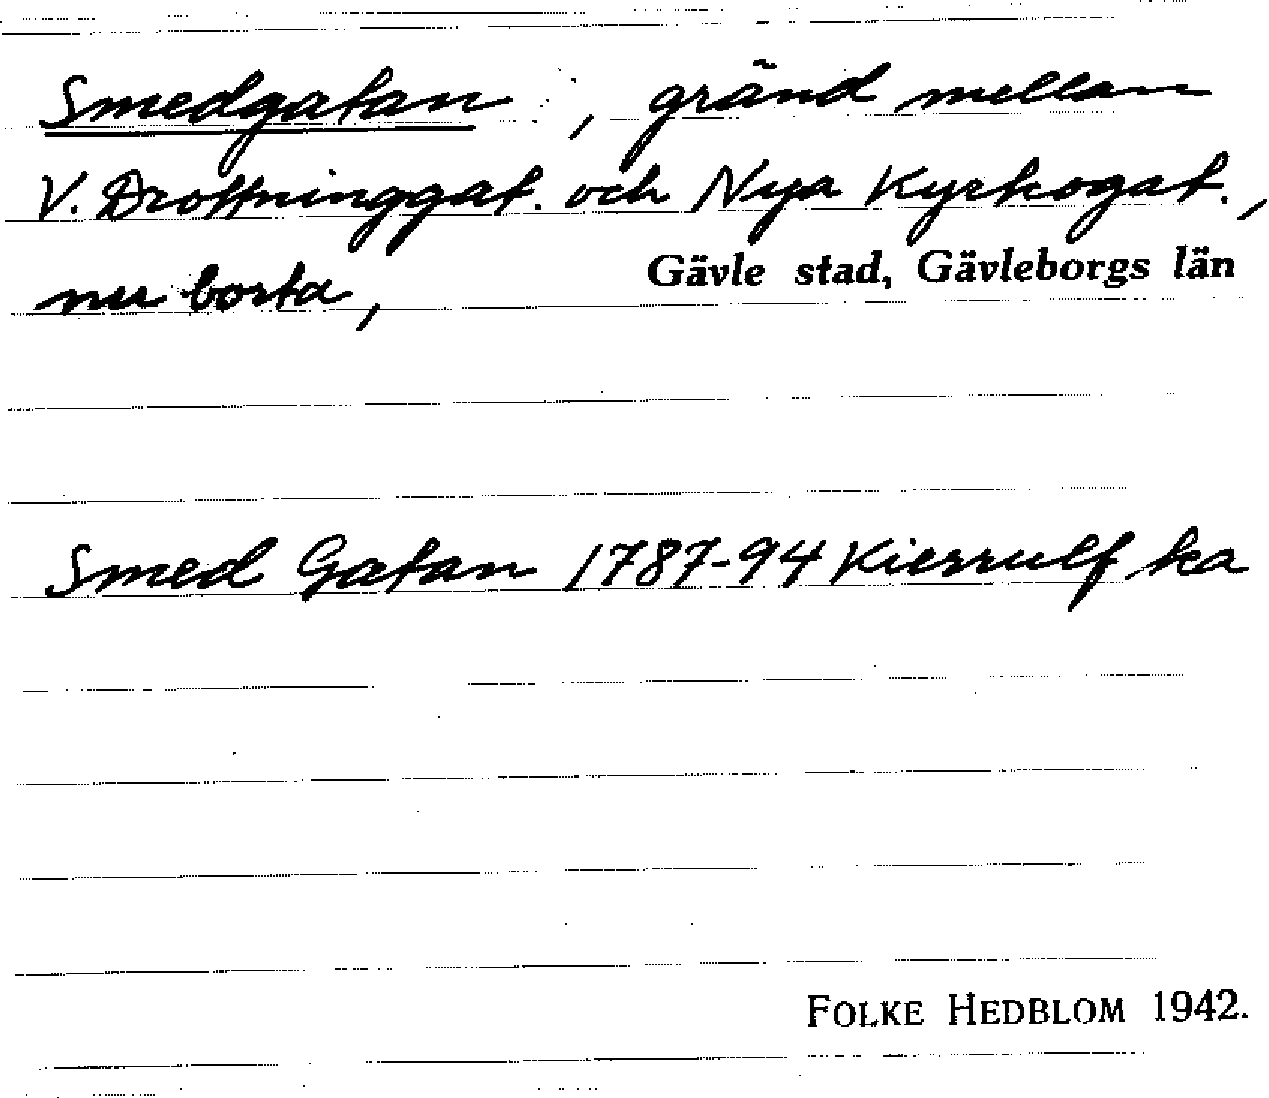 Smedgatan , gränd mellan
V. Drottninggat. och Nya Kyrkogat.,
nu borta, Gävle stad, Gävleborgs län
Smed Gatan 1787-94 Kierrulf ka
FOLKE HEDBLOM 1942.